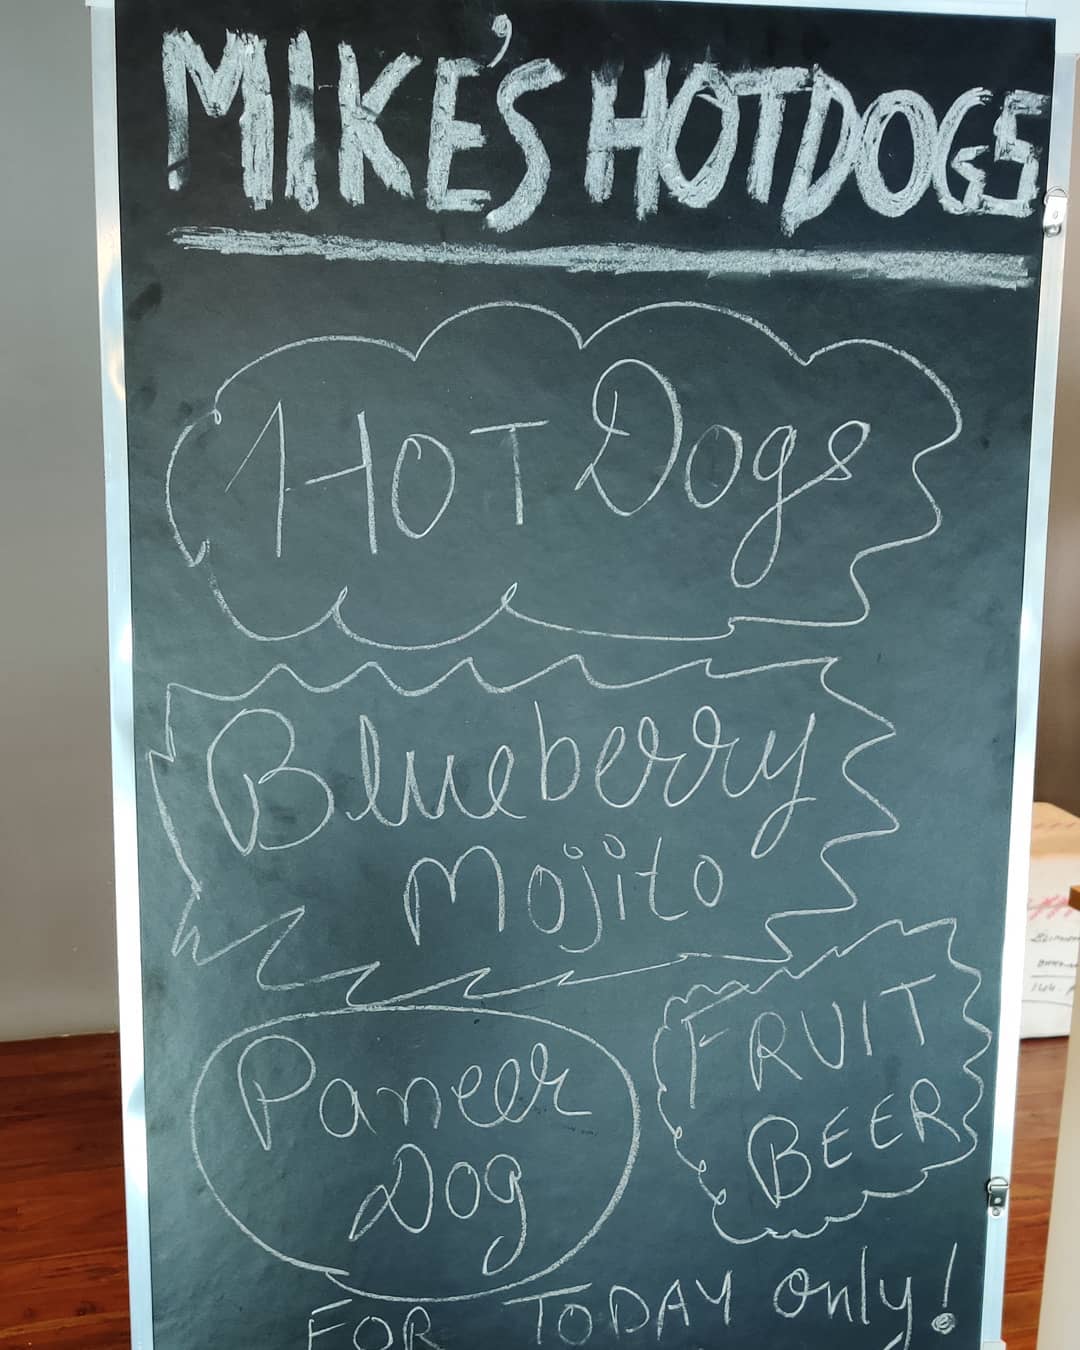 MIKE'S HOTDOGS
HOT Dogs
Blueberry
Mojito
Paneer
Dog
FRUIT
BEER
FOR TODAY only!